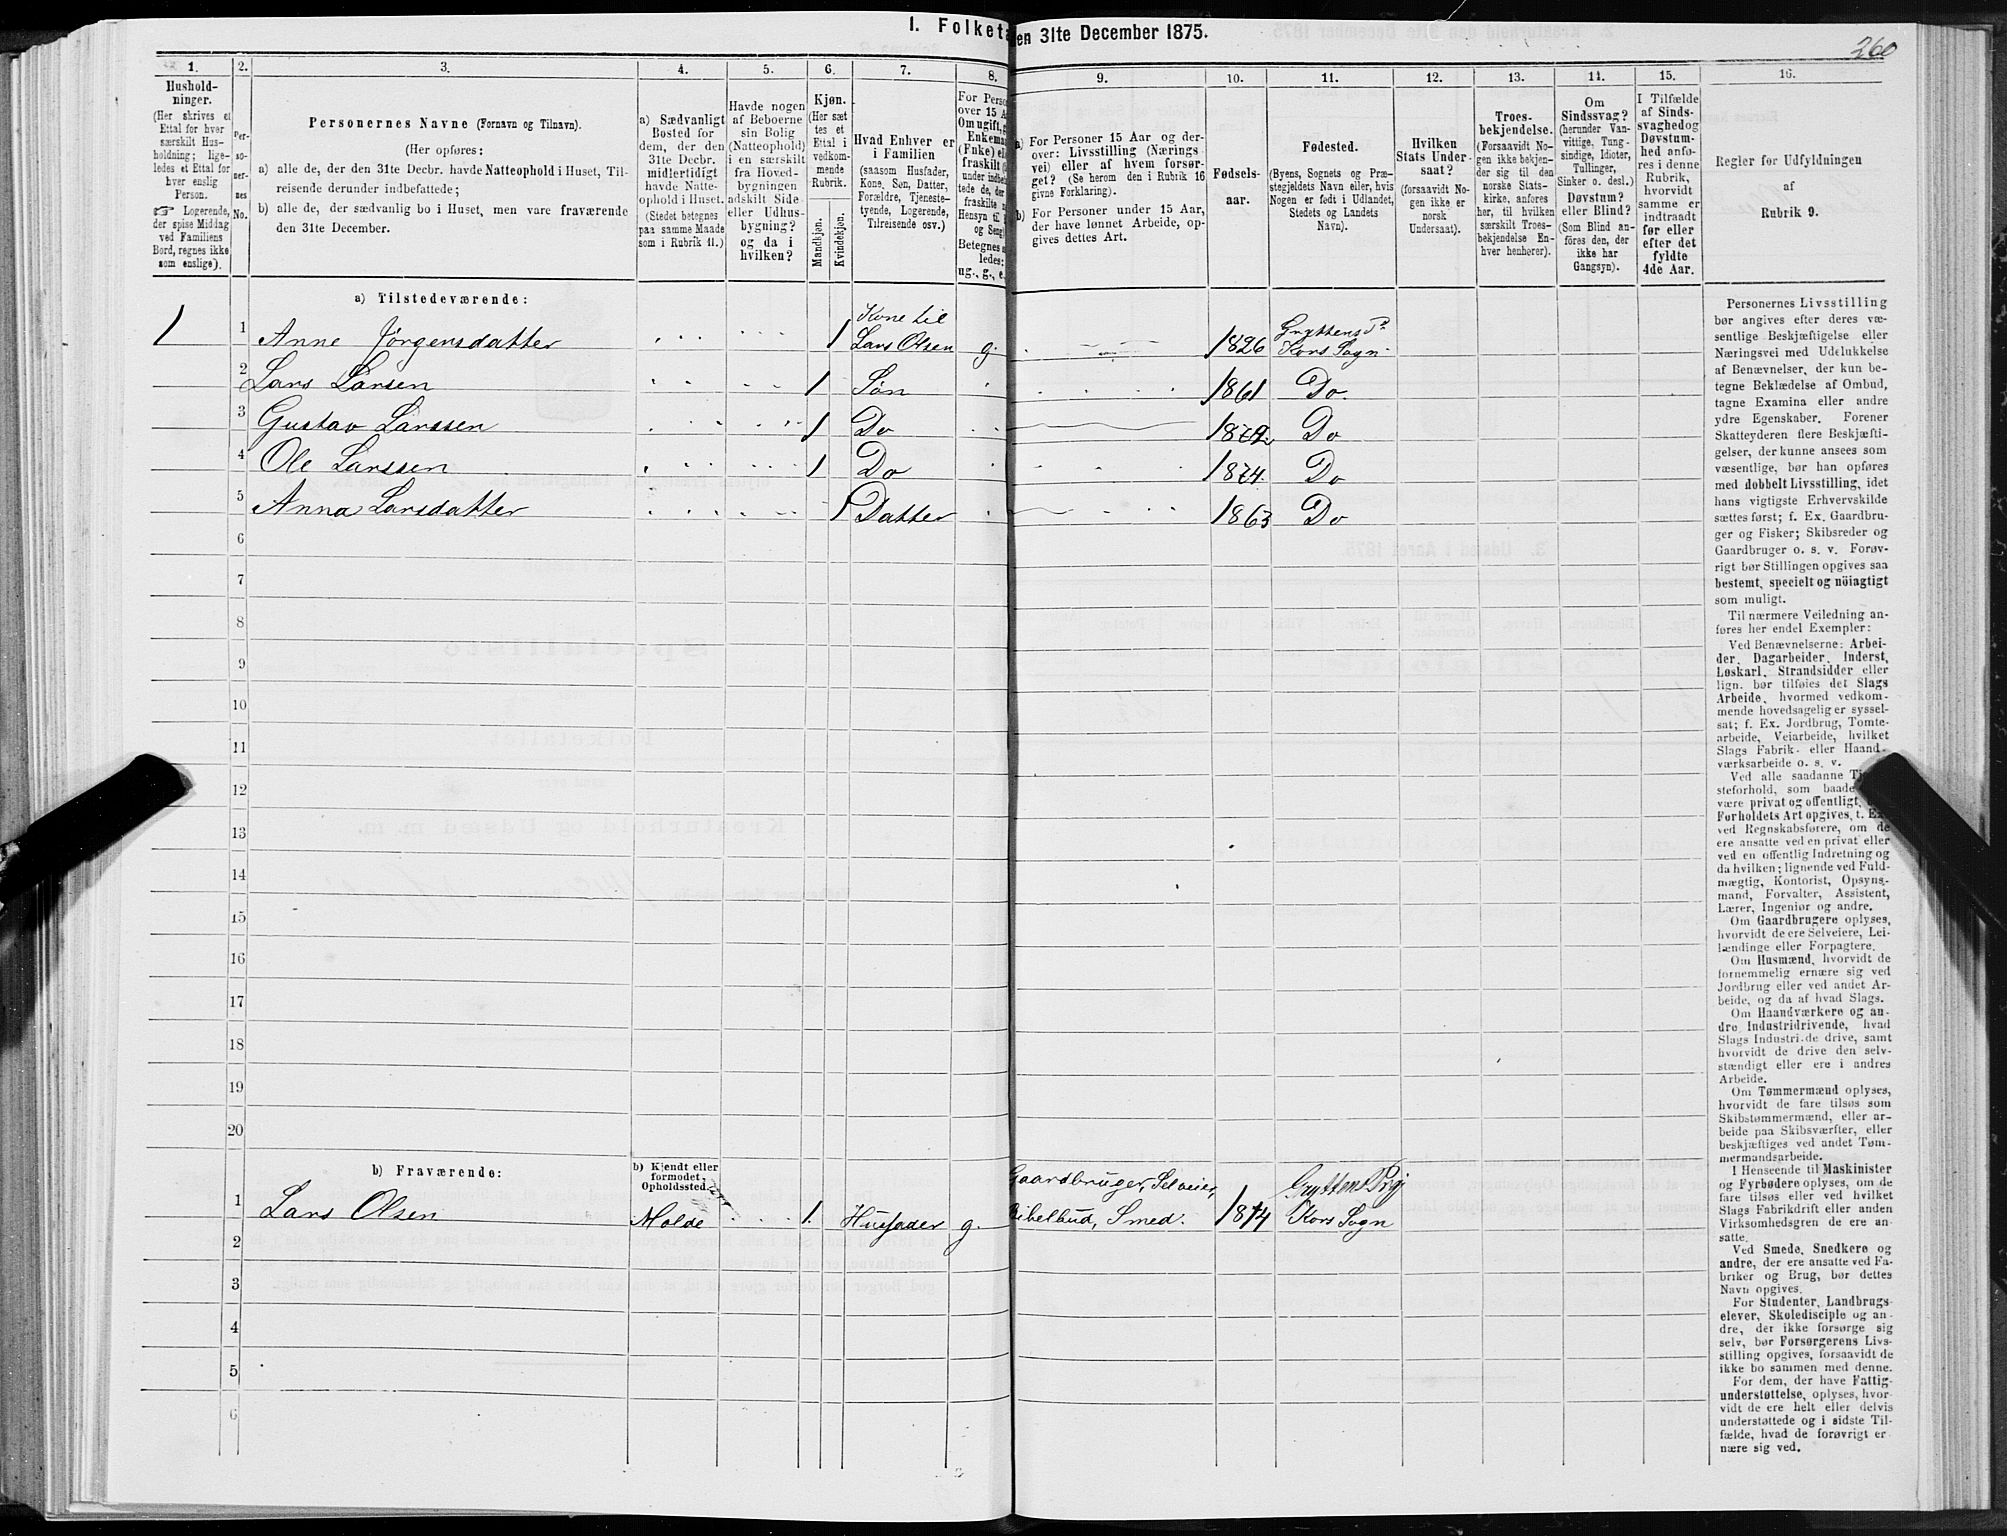 I. Folketa
en 31te December 1875.
260
1.
2.
3.
4.
5.
6.
7.
8.
9.
10.
11.
12.
13.
14.
15.
16.
Hushold-
ninger.
(Her skrives et
Ettal for hver
særskilt Hus-
holdning; lige-
ledes et Ettal for
hver enslig
Person.
☞ Logerende,
der spise Middag
ved Familiens
Bord, regnes ikke
som enslige).
Per-
so-
ner-
nes
No.
Personernes Navne (Fornavn og Tilnavn).
(Her opføres:
a) alle de, der den 31te Decbr. havde Natteophold i Huset, Til-
reisende derunder indbefattede;
b) alle de, der sædvanlig bo i Huset, men vare fraværende
den 31te December.
a) Sædvanligt
Bosted for
dem, der den
31te Decbr.
midlertidigt
havde Natte-
ophold i Huset.
(Stedet betegnes
paa samme Maade
som i Rubrik 11.)
Havde nogen
af Beboerne
sin Bolig
(Natteophold)
i en særskilt
fra Hoved-
bygningen
adskilt Side-
eller Udhus-
bygning?
og da i
hvilken?
Kjøn.
(Her sæt
tes et
Ettal i
vedkom-
mende
Rubrik.
Mandkjøn.
Kvindekjøn.
Hvad Enhver er
i Familien
(saasom Husfader,
Kone, Søn, Datter,
Forældre, Tjeneste-
tyende, Logerende,
Tilreisende osv.)
For Perso
over 15 A
Om ugift, g
Enkeman
(Enke) ell
fraskilt (
under indbe
tede de, der
fraskilte
Hensyn til
og Seng)
Betegnes
ledes:
ug., g., e.
a) For Personer 15 Aar og der-
over: Livsstilling (Nærings
vei) eller af hvem forsør-
get? (Se herom den i Rubrik 16
givne Forklaring).
b) For Personer under 15 Aar,
der have lønnet Arbeide, op-
gives dettes Art.
Fødsels-
aar.
Fødested.
(Byens, Sognets og Præ-
stegjeldets Navn eller, hvis
Nogen er født i Udlandet,
Stedets og Landets
Navn).
Hvilken
Stats Under-
saat?
(forsaavidt No-
gen ikke er
norsk
Undersaat).
Troes-
bekjendelse.
(Forsaavidt No-
gen ikke bekjen-
der sig til den
norske Stats-
kirke, anføres
her, til hvilken
særskilt Troes-
bekjendelse En-
hver henhører).
Om
Sindssvag?
(herunder Van-
vittige, Tung-
sindige, Idioter,
Tullinger,
Sinker o. desl.)
Døvstum?
eller Blind?
(Som Blind an-
føres den, der
ikke har
Gangsyn).
I Tilfælde
af Sinds-
svaghed og
Døvstum-
hed anfø-
res i denne
Rubrik,
hvorvidt
samme er
indtraadt
før eller
efter det
fyldte
4de Aar.
Regler for Udfyldningen
af
Rubrik 9.
a) Tilstedeværende:
1 1 Anne Jørgensdatter 1 Kone til
Lars Olsen g. 1826 Gryttens P.
Kors Sogn.
2 Lars Larsen 1 Søn 1861 Do.
3 Gustav Larssen 1 Do 1872 Do
4 Ole Larssen 1 Do 1874. Do
5 Anna Larsdatter 1 Datter 1863 Do
6
7
8
9
10
11
12
13
14
15
16
17
18
19
20
b) Fraværende:
b) Kjendt eller
formodet
Opholdssted.
1 Lars Olsen Molde 1. Husfader g. Gaardbruger, Selveier,
Bibelbud, Smed. 1814 Grytten Prgj
Kors Sogn
2
3
4
5
6
Personernes Livsstilling
bør angives efter deres væ-
sentlige Beskjæftigelse eller
Næringsvei med Udelukkelse
af Benævnelser, der kun be-
tegne Beklædelse af Ombud,
tagne Examina eller andre
ydre Egenskaber. Forener
Skatteyderen flere Beskjæfti-
gelser, der kunne ansees som
væsentlige, bør han opføres
med dobbelt Livsstilling, idet
hans vigtigste Erhvervskilde
sættes først; f. Ex. Gaardbru-
ger og Fisker; Skibsreder og
Gaardbruger o. s. v. Forøv-
rigt bør Stillingen opgives saa
bestemt, specielt og nöiagtigt
som muligt.
Til nærmere Veiledning an-
føres her endel Exempler:
Ved Benævnelserne: Arbei-
der, Dagarbeider, Inderst,
Løskarl, Strandsidder eller
lign. bør tilføies det Slags
Arbeide, hvormed vedkom-
mende hovedsagelig er syssel-
sat; f. Ex. Jordbrug, Tomte-
arbeide, Veiarbeide, hvilket
Slags Fabrik- eller Haand-
værksarbeide o. s. v.
Ved alle saadanne Tj
steforhold, som baade
være privat og offentligt,
Forholdets Art opgives, t. Ex
ved Regnskabsførere, om de
ere ansatte ved en privat eller
ved en offentlig Indretning og
da hvilken; lignende ved Fuld-
mægtig, Kontorist, Opsyns-
mand, Forvalter, Assistent,
Lærer, Ingeniør og andre.
Om Gaardbrugere oplyses,
hvorvidt de ere Selveiere, Lei-
lændinge eller Forpagtere.
Om Husmænd, hvorvidt de
fornemmelig ernære sig ved
Jordbrug eller ved andet Ar-
beide, og da af hvad Slags.
Om Haandværkere og an-
dre Industridrivende, hvad
Slags Industri de drive, samt
hvorvidt de drive den selv-
stændigt eller ere i andres
Arbeide.
Om Tømmermænd oplyses,
hvorvidt de fare tilsøs som
Skibstømmermænd, eller ar-
beide paa Skibsværfter, eller
beskjæftiges ved andet Tøm-
mermandsarbeide.
I Henseende til Maskinister
og Fyrbødere oplyses, om de
fare tilsøs eller ved hvilket
Slags Fabrikdrift eller anden
Virksomhedsgren de ere an-
satte.
Ved Smede, Snedkere og
andre, der ere ansatte ved Fa-
briker og Brug, bør dettes
Navn opgives.
For Studenter, Landbrugs-
elever, Skoledisciple og an-
dre, der ikke forsørge sig
selv, bør Forsørgerens Livs-
stilling opgives, forsaavidt de
ikke bo sammen med denne.
For dem, der have Fattig-
understøttelse, oplyses, hvor-
vidt de ere helt eller delvis
understøttede og i sidste Til-
fælde, hvad de forøvrigt er
nære sig ved.